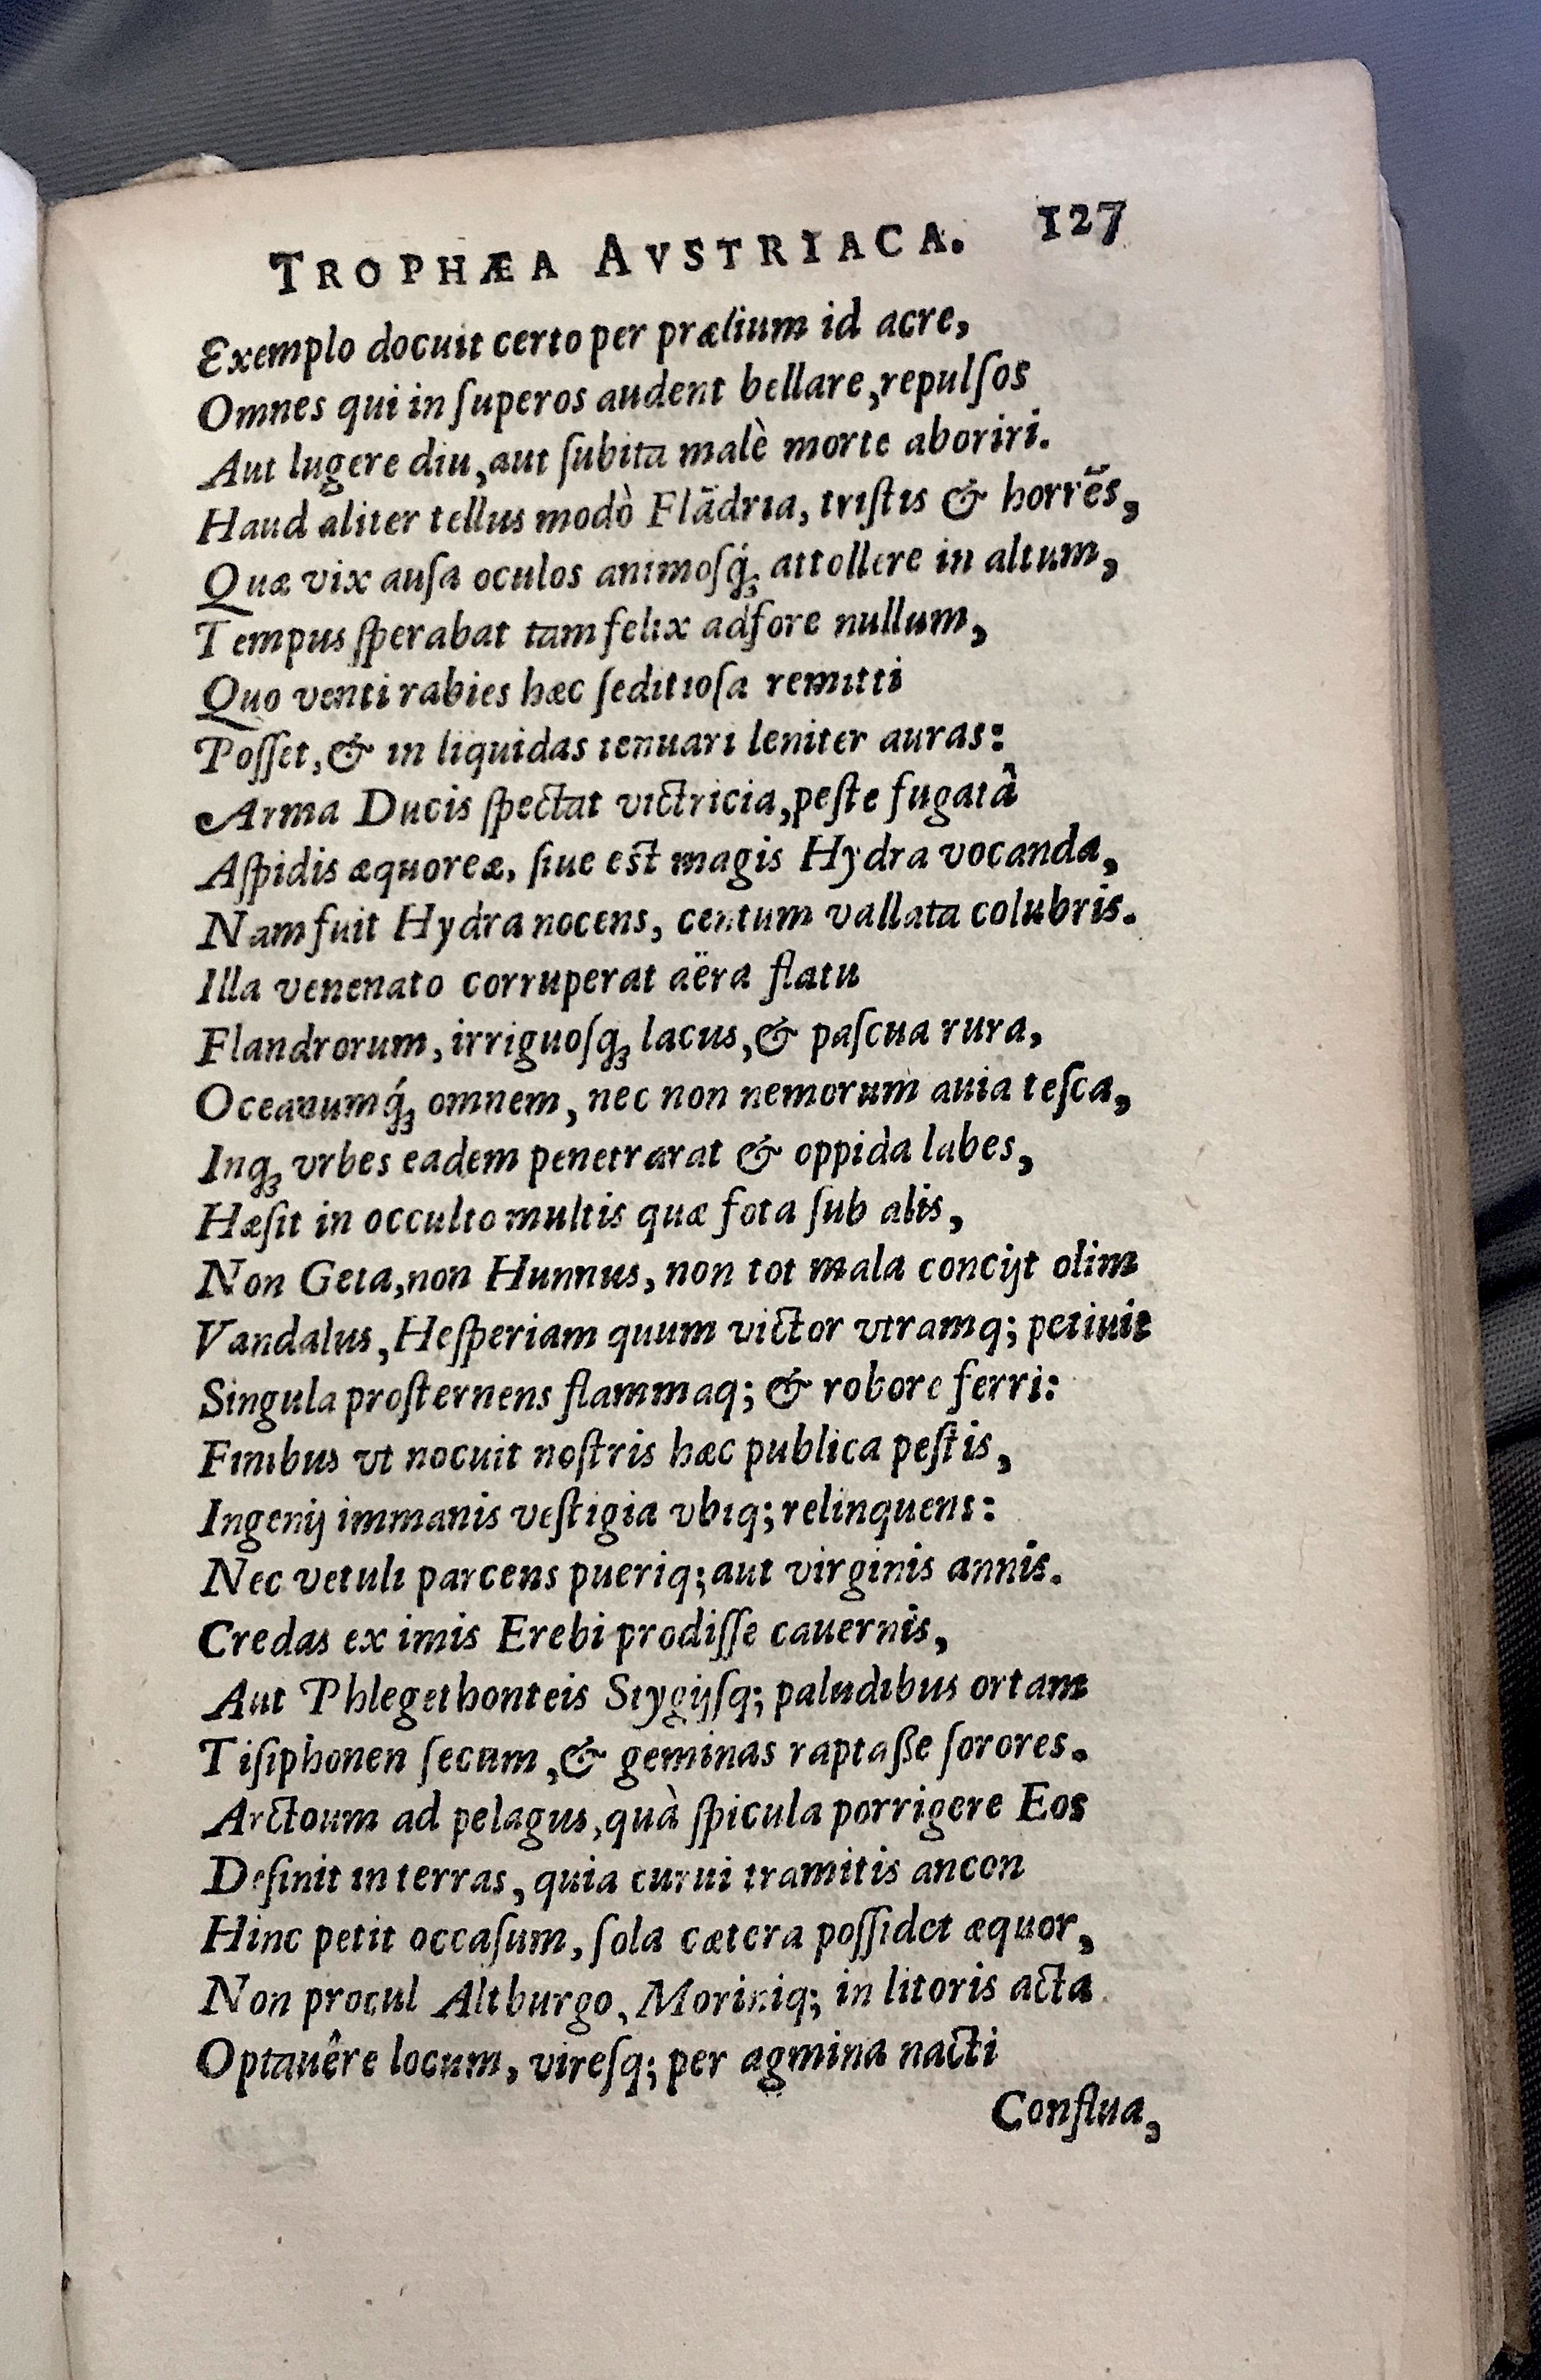 TROPHÆA AVSTRIACA. 127
Exemplo docuit certo per prælium id acre,
Omnes qui in ſuperos audent bellare, repulſos
Aut lugere diu, aut ſubita malè morte aboriri.
Haud aliter tellus modò Flãdria, triſtis & horrẽs,
Quæ vix auſa oculos animoſq́ꝫ attollere in altum,
Tempus ſperabat tam felix adfore nullum,
Quo venti rabies hæc ſeditioſa remitti
Poſſet, & in liquidas tenuari leniter auras:
Arma Ducis ſpectat victricia, peſte fugatâ
Aſpidis æquoreæ, ſiue eſt magis Hydra vocanda,
Nam fuit Hydra nocens, centum vallata colubris.
Illa venenato corruperat aëra flatu
Flandrorum, irriguoſqꝫ lacus, & paſcua rura,
Oceanumq́ꝫ omnem, nec non nemorum auia teſca,
Inqꝫ vrbes eadem penetrarat & oppida labes,
Hæſit in occulto multis quæ fota ſub alis,
Non Geta, non Hunnus, non tot mala concijt olim
Vandalus, Heſperiam quum victor vtramq; petiuit
Singula proſternens flammaq; & robore ferri:
Finibus vt nocuit noſtris hæc publica peſtis,
Ingenij immanis veſtigia vbiq; relinquens:
Nec vetuli parcens pueriq; aut virginis annis.
Credas ex imis Erebi prodiſſe cauernis,
Aut Phlegethonteis Stygijſq; paludibus ortam
Tiſiphonen ſecum, & geminas raptaße ſorores.
Arctoum ad pelagus, quà ſpicula porrigere Eos
Deſinit in terras, quia curui tramitis ancon
Hinc petit occaſum, ſola cætera poſſidet æquor,
Non procul Altburgo, Moriniq; in litoris acta
Optauêre locum, vireſq; per agmina nacti
Conflua,